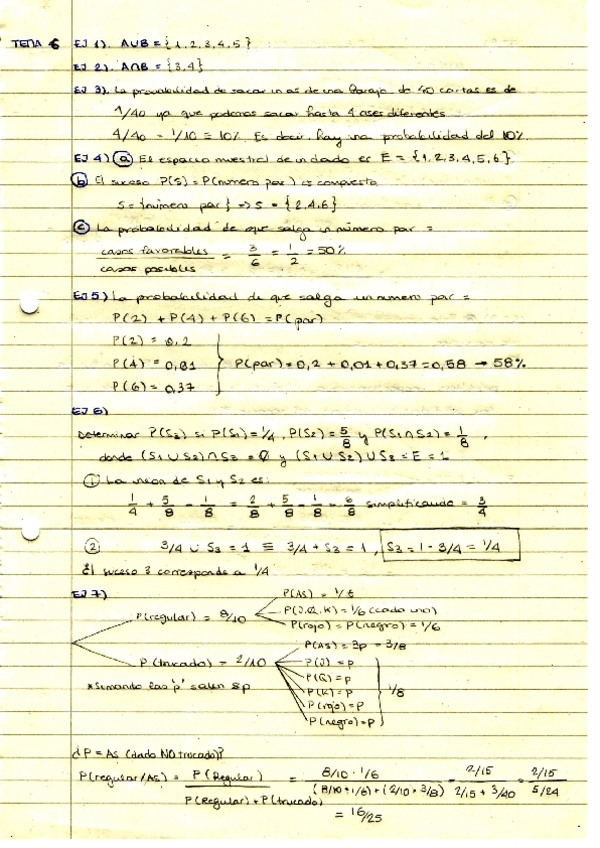 TEMA 6 EJ 1). A∪B = {1,2,3,4,5}
EJ 2). A∩B = {3,4}
EJ 3). La probabilidad de sacar un as de una baraja de 40 cartas es de
4/40 ya que podemos sacar hasta 4 ases diferentes
4/40 = 1/10 = 10%. Es decir, hay una probabilidad del 10%.
EJ 4) a El espacio muestral de un dado es E = {1,2,3,4,5,6}
b El suceso P(S) = P(número par) es compuesto
S = {número par} => S = {2,4,6}
c La probabilidad de que salga un número par =
casos favorables / casos posibles = 3/6 = 1/2 = 50%
EJ 5) La probabilidad de que salga un numero par =
P(2) + P(4) + P(6) = P(par)
P(2) = 0,2
P(4) = 0,01 } P(par) = 0,2 + 0,01 + 0,37 = 0,58 → 58%
P(6) = 0,37
EJ 6)
Determinar P(S3) si P(S1) = 1/4, P(S2) = 5/8 y P(S1∩S2) = 1/8,
donde (S1∪S2)∩S3 = Ø y (S1∪S2)∪S3 = E = 1
1 La union de S1 y S2 es:
1/4 + 5/8 - 1/8 = 2/8 + 5/8 - 1/8 = 6/8 simplificando = 3/4
2 3/4 ∪ S3 = 1 ≡ 3/4 + S3 = 1, S3 = 1 - 3/4 = 1/4
El suceso 3 corresponde a 1/4
EJ 7)
P(AS) = 1/6
P(regular) = 8/10 P(J,Q,K) = 1/6 (cada uno)
P(rojo) = P(negro) = 1/6
P(AS) = 3p = 3/8
P(trucado) = 2/10 P(J) = p
P(Q) = p
*Sumando las 'p' salen 8p P(K) = p } 1/8
P(rojo) = p
P(negro) = p
¿P = As (dado NO trucado)?
P(regular/As) = P(Regular) / P(Regular) + P(trucado) = 8/10 · 1/6 / (8/10 · 1/6) + (2/10 · 3/8) = 2/15 / 2/15 + 3/40 = 2/15 / 5/24
= 16/25